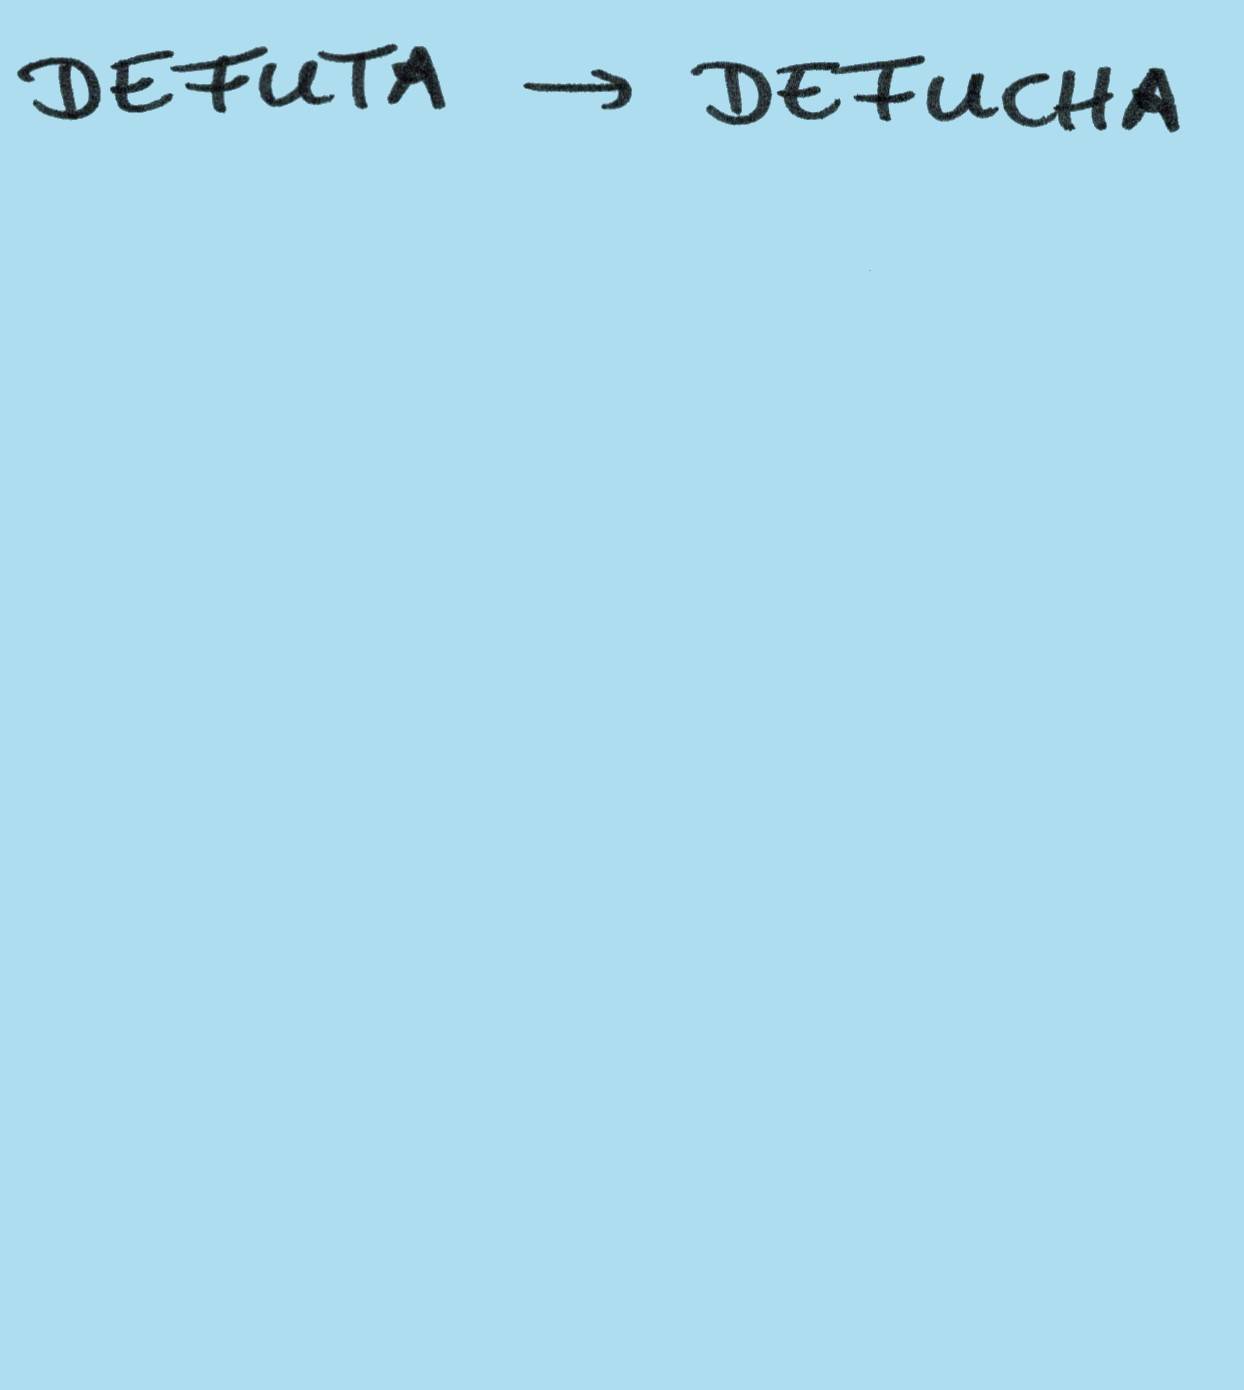 DEFUTA → DEFUCHA